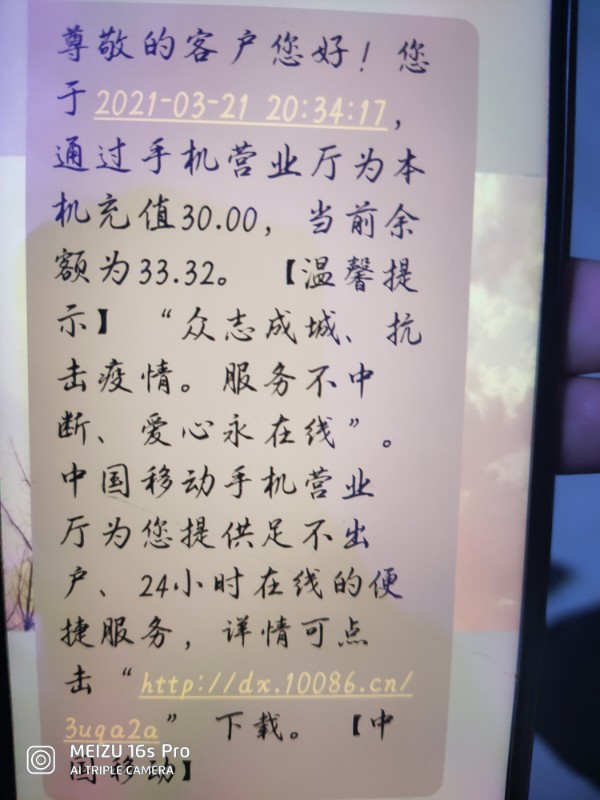 尊敬的客户您好！您
于2021-03-21 20:34:17，
通过手机营业厅为本
机充值30.00，当前余
额为33.32。【温馨提
示】“众志成城、抗
击疫情。服务不中
断、爱心永在线”。
中国移动手机营业
厅为您提供足不出
户、24小时在线的便
捷服务，详情可点
击“http://dx.10086.cn/
3uqa2a”下载。【中
国移动】
MEIZU 16s Pro
AI TRIPLE CAMERA